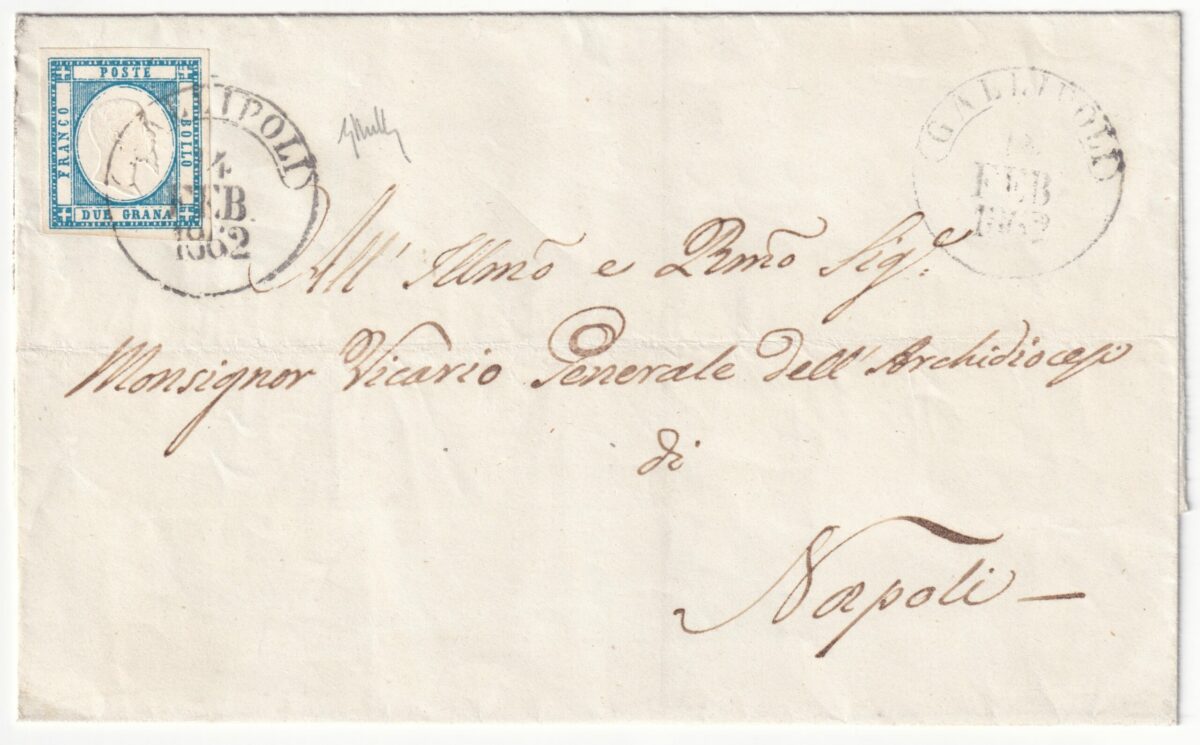 POSTE
FRANCO
BOLLO
DUE GRANA
LIPOLI
4
FEB.
1862
GALLIPOLI
FEB
1862
All' Illmo e Rmo Sigr.
Monsignor Vicario Generale dell' Archidiocesi
di
Napoli —